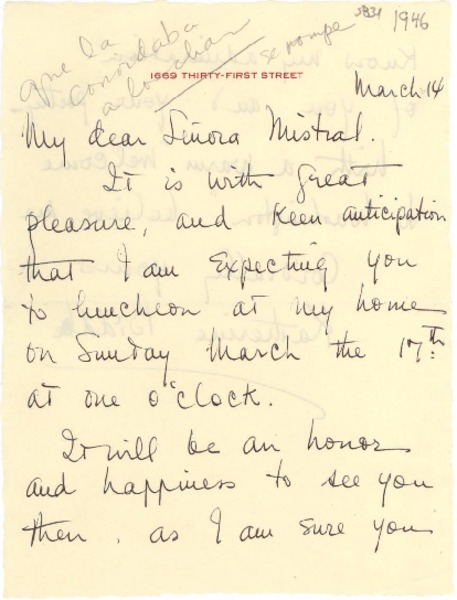 1946
que la
convidaba
a
se rompe
1669 THIRTY-FIRST STREET
March 14
My dear Señora Mistral.
It is with great
pleasure, and keen anticipation
that I am expecting you
to luncheon at my home
on Sunday March the 17th.
at one o'clock.
It will be an honor
and happiness to see you
then, as I am sure you